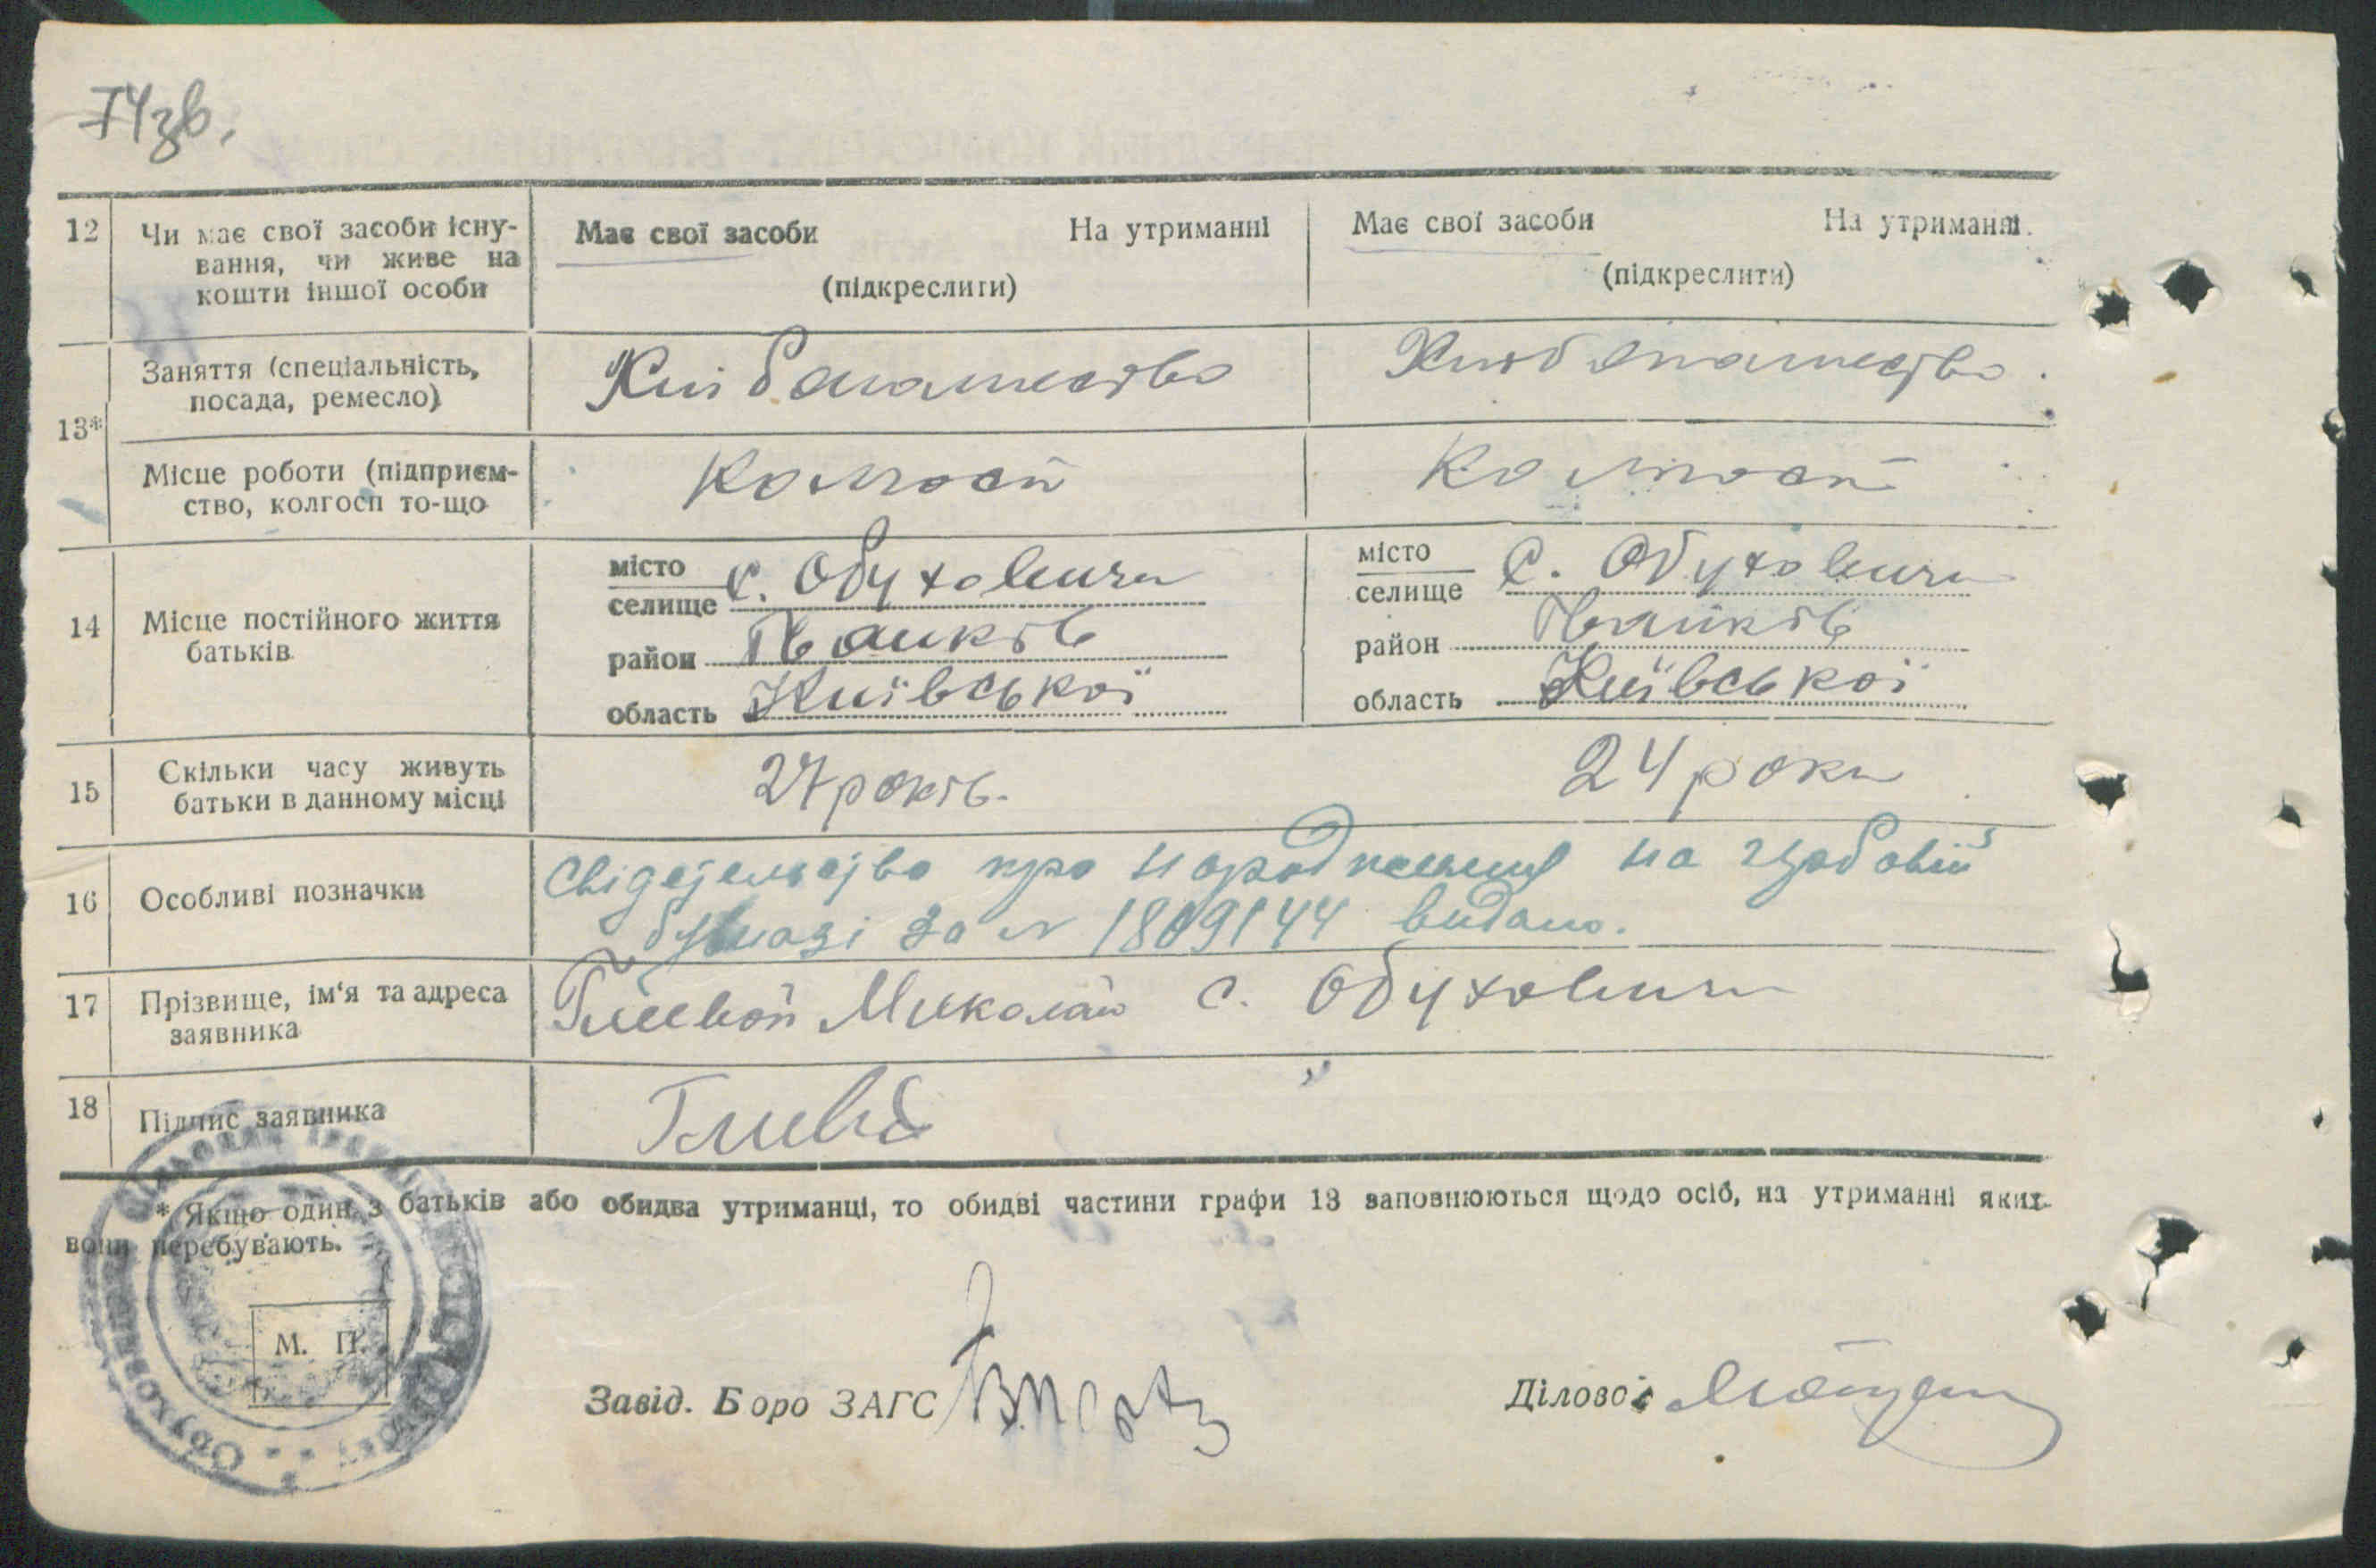 74зв.
12 Чи має свої засоби існу-
вання, чи живе на
кошти іншої особи
Має свої засоби На утриманні
(підкреслити)
Має свої засоби На утриманні.
(підкреслити)
13*
Заняття (спеціальність,
посада, ремесло)
Хлібопашество
Хлібопашество
Місце роботи (підприєм-
ство, колгосп то-що
Колгосп
Колгосп
14 Місце постійного життя
батьків
місто
селище с. Обуховичи
район Іванків
область Київської
місто
селище С. Обуховичи
район Іванків
область Київської
15 Скільки часу живуть
батьки в данному місці
27 років.
24 роки
16 Особливі позначки
Свідетельство про народження на гербовій
бумазі за № 1809144 видано.
17 Прізвище, ім'я та адреса
заявника
Миколай С. Обуховичи
18 Підпис заявника
* Якщо один з батьків або обидва утриманці, то обидві частини графи 13 заповнюються щодо осіб, на утриманні яких
вони перебувають.
М. П.
Завід. Бюро ЗАГС
Діловод